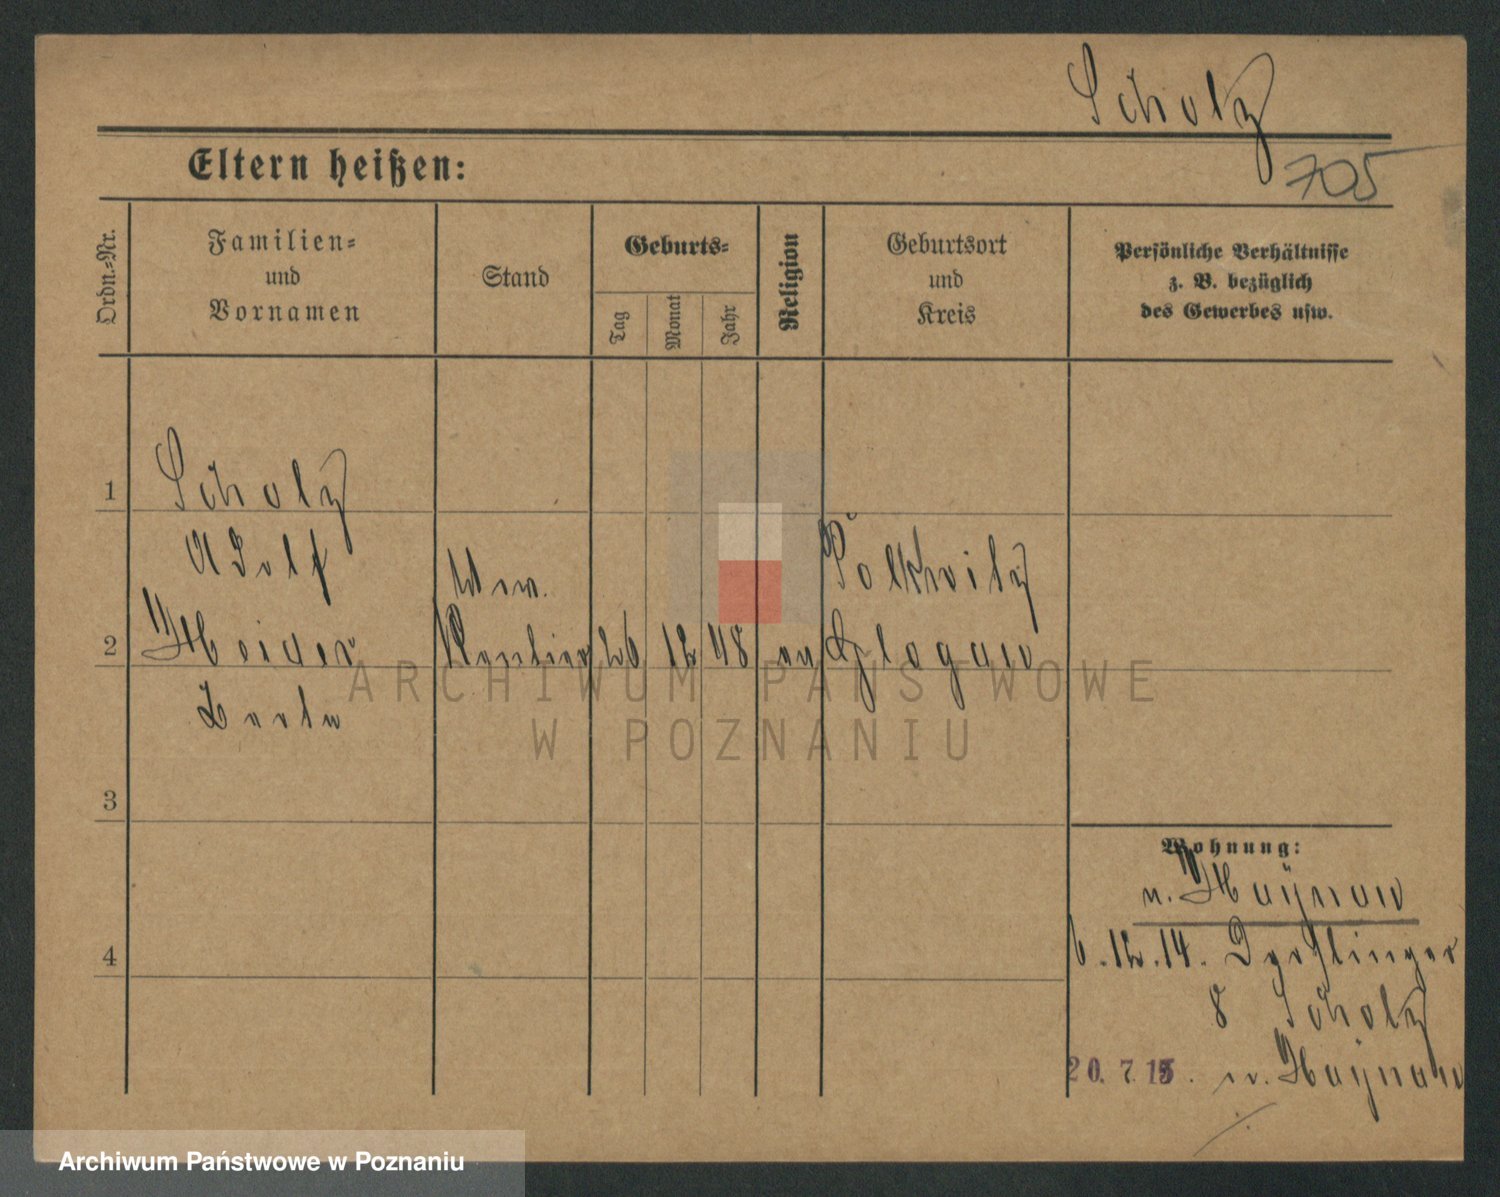 Scholz
Eltern heißen:
705
Ordn.-Nr.
Familien-
und
Vornamen
Stand
Geburts-
Tag
Monat
Jahr
Religion
Geburtsort
und
Kreis
Persönliche Verhältnisse
z. B. bezüglich
des Gewerbes usw.
1
Scholz
Adolf
Ww.
Polkwitz
2
Rentier 26 12 48 ev Glogau
3
Wohnung:
n. Haÿnau
4
6.12.14. Derfflinger
8 Scholz
20.7.15. n. Haÿnau
ARCHIWUM PAŃSTWOWE
W POZNANIU
Archiwum Państwowe w Poznaniu